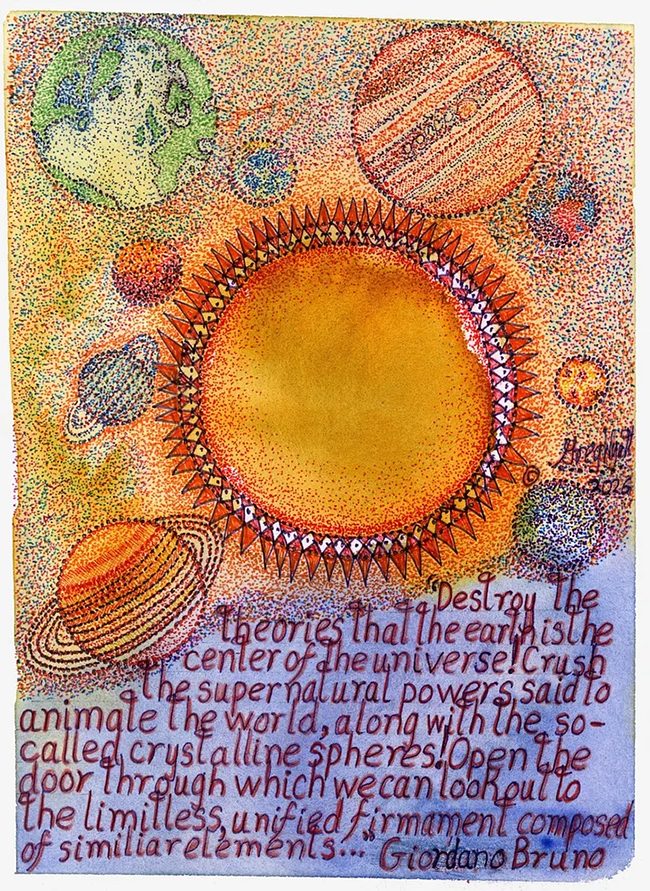 ©
"Destroy the
theories that the earth is the
center of the universe! Crush
the supernatural powers said to
animate the world, along with the so-
called crystalline spheres! Open the
door through which we can look out to
the limitless, unified firmament composed
of similiar elements..." Giordano Bruno